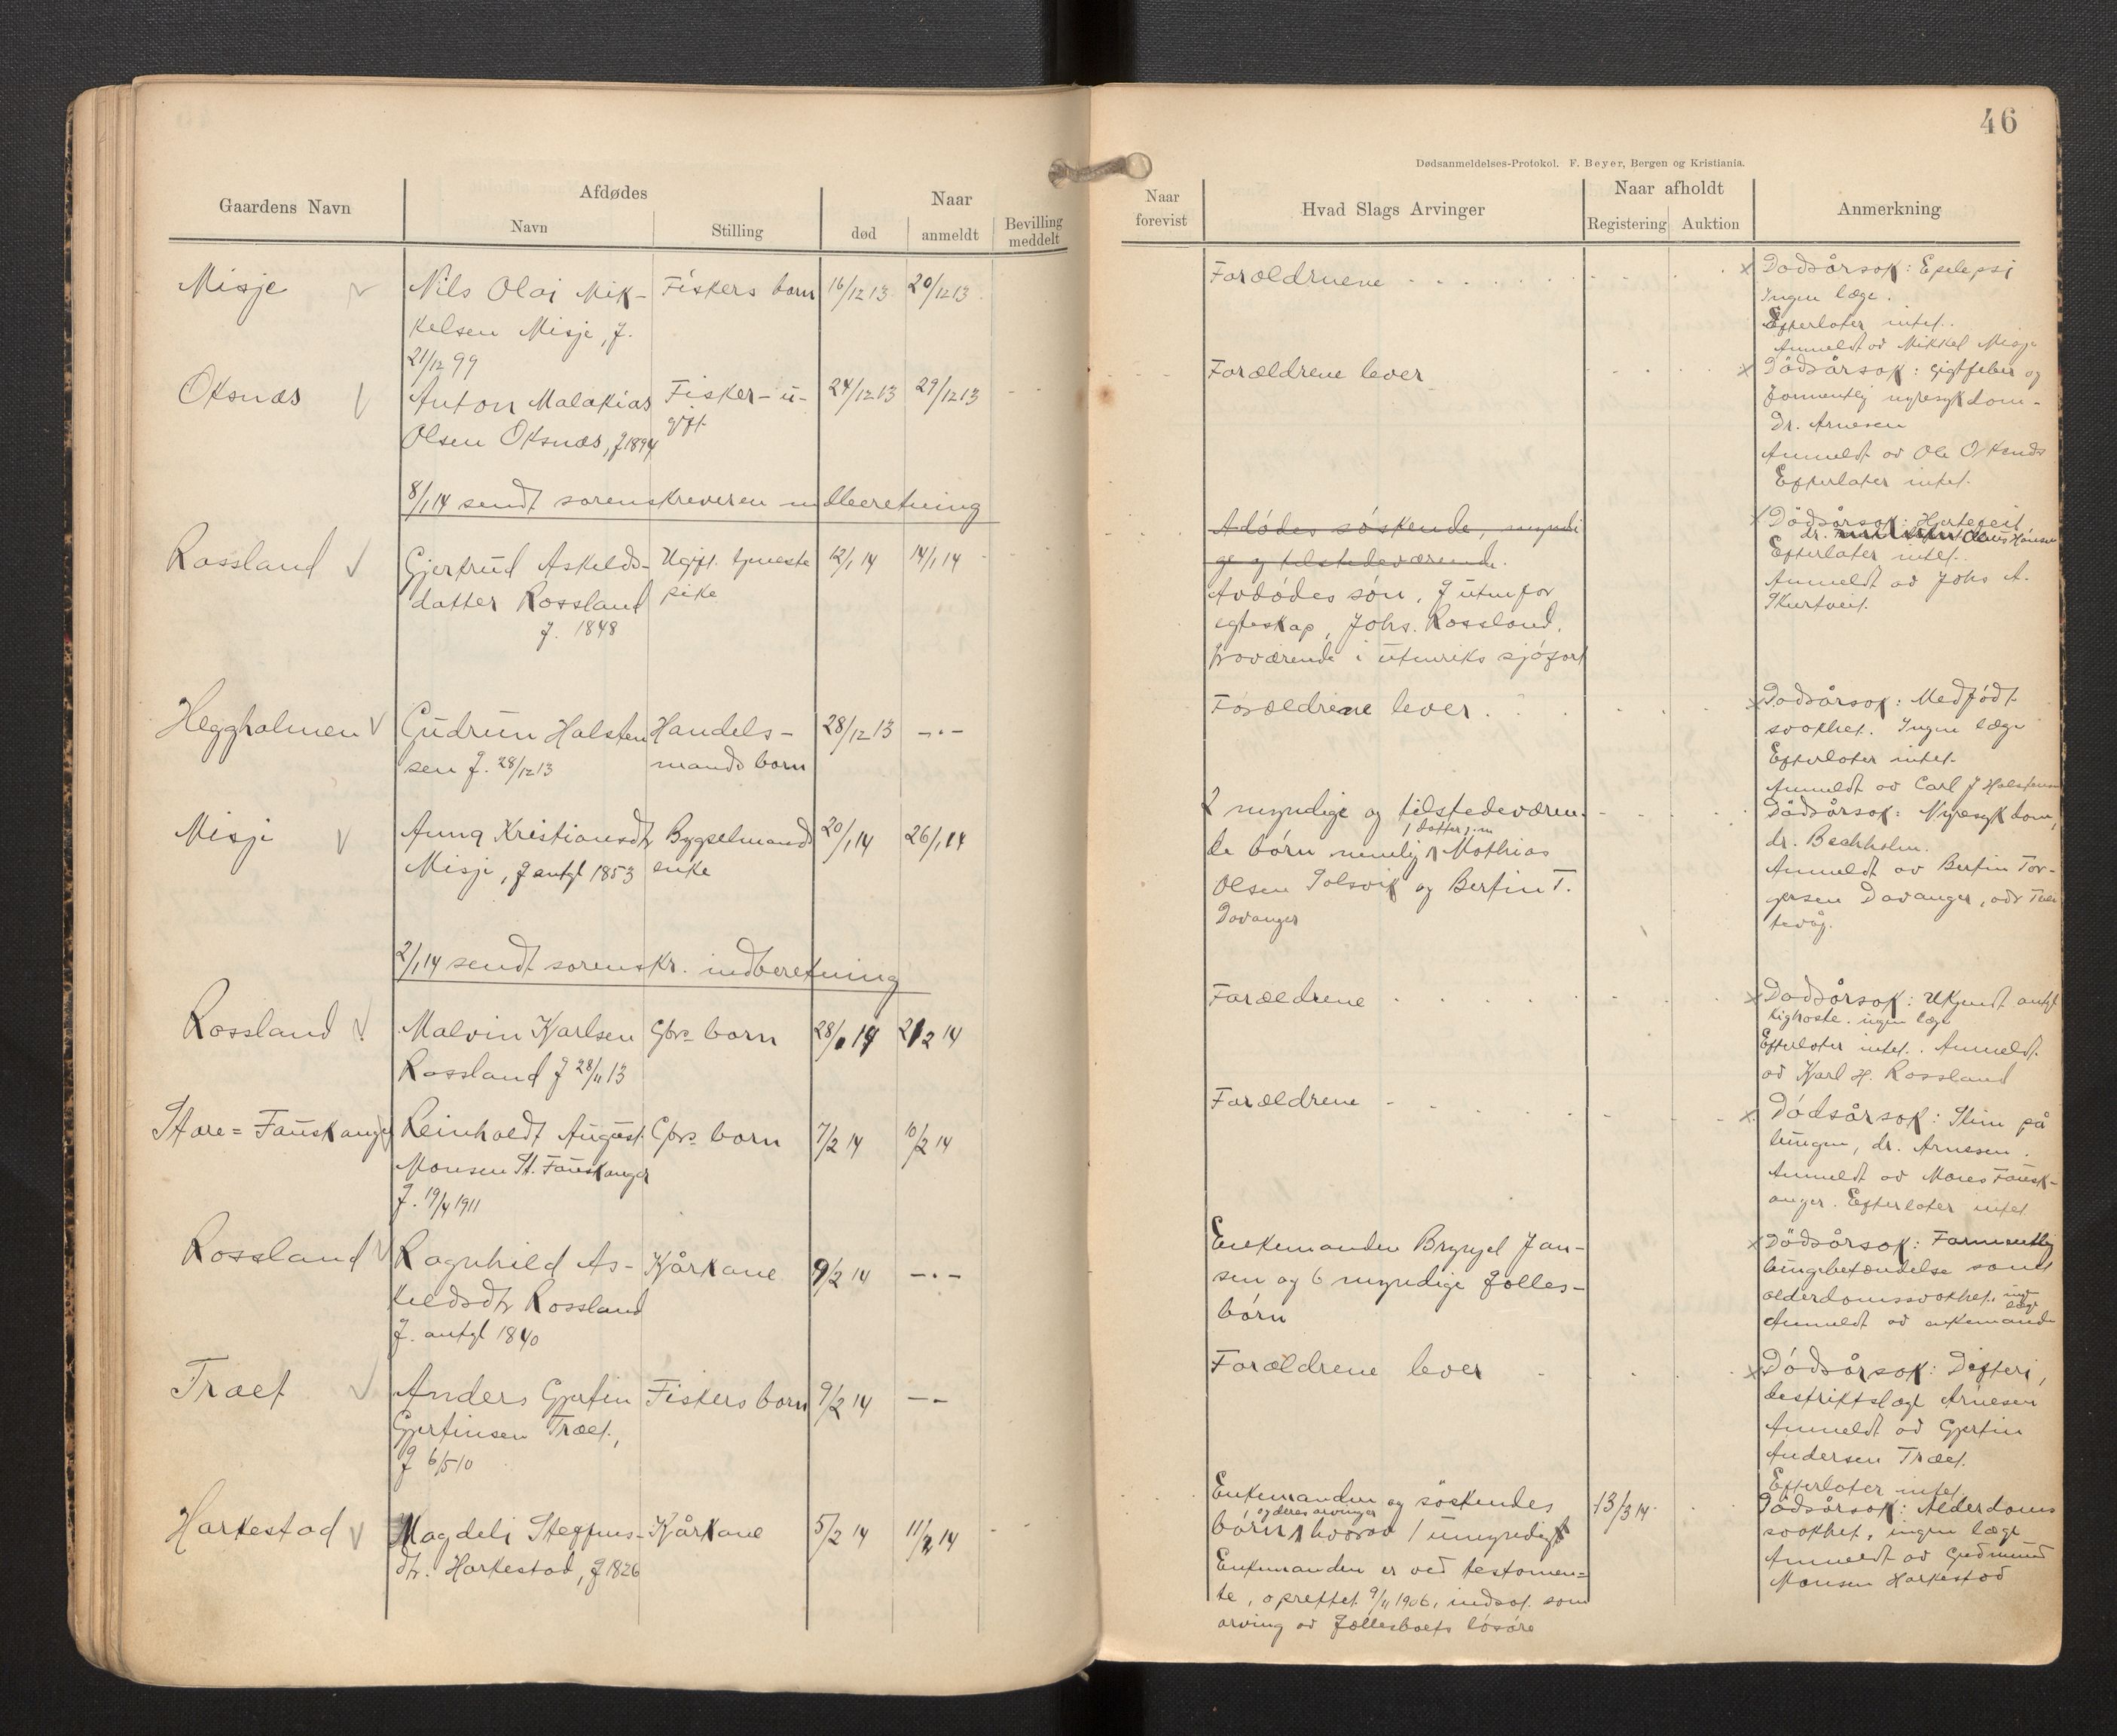 46
Dødsanmeldelses-Protokol. F. Beyer, Bergen og Kristiania.
Gaardens Navn
Afdødes
Navn
Stilling
Naar
død
anmeldt
Bevilling meddelt
Naar forevist
Hvad Slags Arvinger
Naar afholdt
Registering
Auktion
Anmerkning
Misje
Nils Olai Mik-
kelsen Misje, f.
21/12 99
Fiskers barn
16/12 13
20/12 13
Forældrene
Dødsårsak: Epilepsi
Ingen læge.
Efterlater intet.
Anmeldt av Mikkel Misje
Oksnæs
Anton Malakias
Olsen Oksnæs, f 1894
Fisker - u-
gift
24/12 13
29/12 13
Forældrene lever
Dödsårsak: gigtfeber og
formentlig nyresykdom-
Dr. Arnesen
Anmeldt av Ole Oksnæs
Efterlater intet.
8/1 14 sendt sorenskriveren indberetning
Rossland
Gjertrud Askelds-
datter Rossland
f. 1848
Ugift tjeneste
pike
12/1 14
14/1 14
Avdödes söskende, myndi
ge og tilstedeværende.
Avdödes sön, f utenfor
egteskap, Johs. Rossland,
fraværende i utenriks sjöfart
Dödsårsak: Hjertefeil
dr. Claus Hansen
Efterlater intet.
Anmeldt av Johs A.
Skurtveit.
Heggholmen
Gudrun Halsten
sen f. 28/12 13
Handels-
mands barn
28/12 13
-.-
Forældrene lever.
Dødsårsak: Medfödt
svakhet. Ingen læge
Efterlater intet.
Anmeldt av Carl J Halstensen
Misje
Anna Kristiansdtr
Misje, f antgl 1853
Bygselmands
enke
20/1 14
26/1 14
2 myndige og tilstedeværen-
1 datter g. m
de börn nemlig Mathias
Olsen Solsvik og Bertin T.
Davanger
Dödsårsak: Nyresykdom,
dr. Bechholm.
Anmeldt av Bertin Tor-
gersen Davanger, adr
2/1 14 sendt sorenskr. indberetning
Rossland
Malvin Karlsen
Rossland f 28/11 13
Gbr. barn
28/1 14
2/2 14
Forældrene
Dødsårsak: Ukjendt antgl
kighoste. ingen læge
Efterlater intet. Anmeldt
av Karl H. Rossland
Store = Fauskanger
Reinholdt August
Monsen St. Fauskanger
f. 19/4 1911
Gbr. barn
7/2 14
10/2 14
Forældrene
Dödsårsak: Slim på
lungen, dr. Arnesen.
Anmeldt av Mons Fausk-
anger. Efterlater intet
Rossland
Ragnhild As-
keldsdtr Rossland
f. antgl 1840
Kårkone
9/2 14
-.-
Enkemanden Brynjel Jan-
sen og 6 myndige fælles-
börn
Dödsårsak: Formentlig
lungebetændelse samt
alderdomssvakhet, ingen
læge
Anmeldt av enkemanden
Træet
Anders Gjertin
Gjertinsen Træet,
f 6/5 10
Fiskers barn
9/2 14
-.-
Forældrene lever
Dödsårsak: Difteri,
distriktslæge Arnesen
Anmeldt av Gjertin
Andersen Træet.
Efterlater intet
Harkestad
Magdeli Steffens-
dtr. Harkestad, f 1826
Kårkone
5/2 14
11/2 14
Enkemanden og söskendes
og deres arvinger
börn hvorav 1 umyndig
Enkemanden er ved testamen-
te, oprettet 9/11 1906, indsat som
arving av fællesboets lösöre
13/3 14
Dödsårsak: Alderdoms
svakhet, ingen læge
Anmeldt av Gudmund
Monsen Harkestad